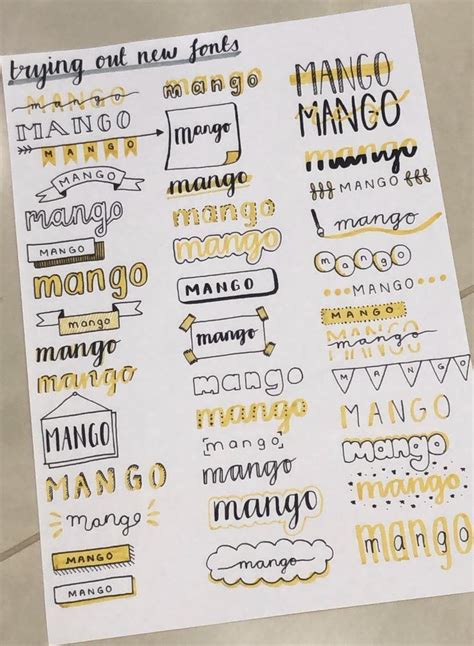 trying out new fonts
MANGO
mango
MANGO
MANGO
MANGO
mango
MANGO
mango
mango
mango
mango
MANGO
MANGO
mango
MANGO
MANGO
mango
mango
mango
mango
mango
MANGO
mango
mango
mango
[mango]
mango
mango
mango
MANGO
MANGO
mango
MANGO
mango
mango
MANGO
MANGO
MANGO
mango
MANGO
MANGO
mango
mango
mango